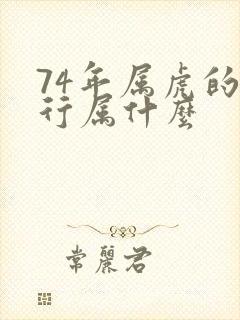 74年属虎的
行属什麽
常丽君